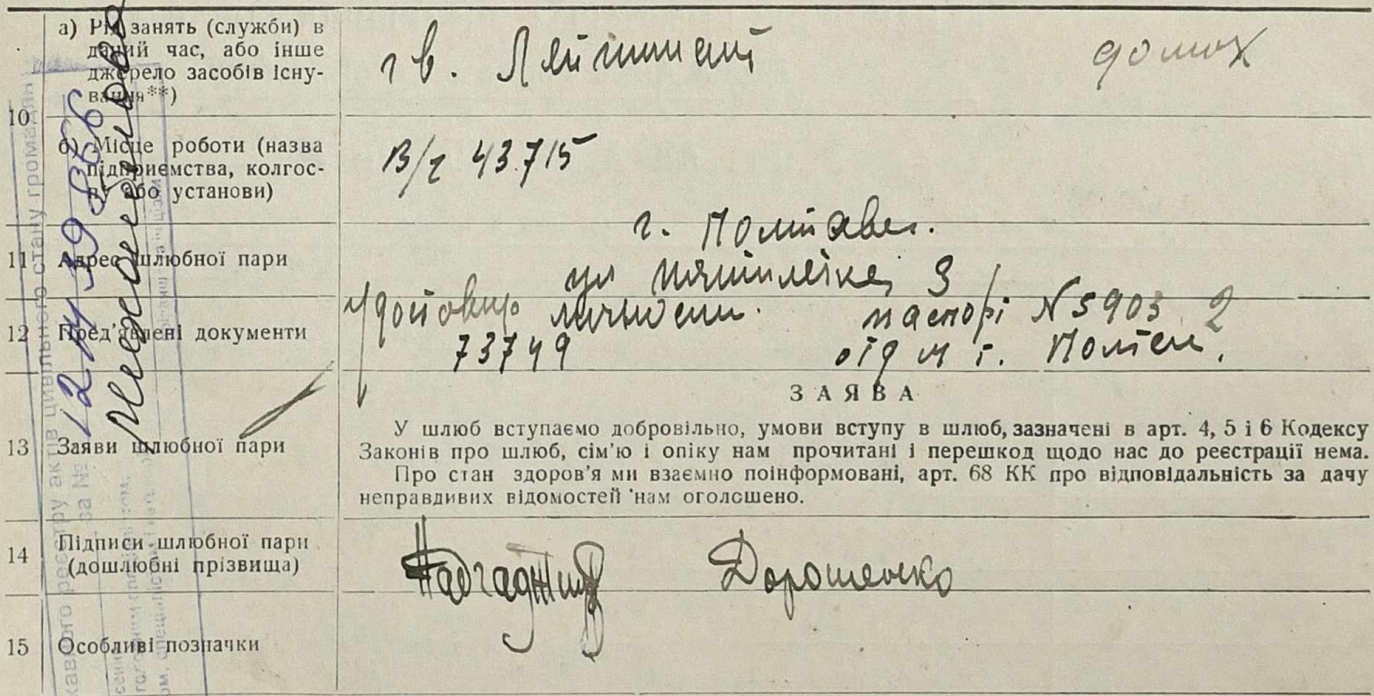 а) Рід занять (служби) в
даний час, або інше
джерело засобів існу-
вання**)
гв. Лейтинант
домох
10
б) Місце роботи (назва
підприємства, колгос-
пу або установи)
В/г 43715
11 Адрес шлюбної пари
г. Полтавег.
ул пятилетке 3
12 Пред'явлені документи
Удостовир личности.
73749
паспорт N 5903 2
отд м г. Полтав.
13 Заяви шлюбної пари
ЗАЯВА
У шлюб вступаємо добровільно, умови вступу в шлюб, зазначені в арт. 4, 5 і 6 Кодексу
Законів про шлюб, сім'ю і опіку нам прочитані і перешкод щодо нас до реєстрації нема.
Про стан здоров'я ми взаємно поінформовані, арт. 68 КК про відповідальність за дачу
неправдивих відомостей нам оголошено.
14 Підписи шлюбної пари
(дошлюбні прізвища)
Дорошенко
15 Особливі позначки
актів цивільного стану громадян
за №